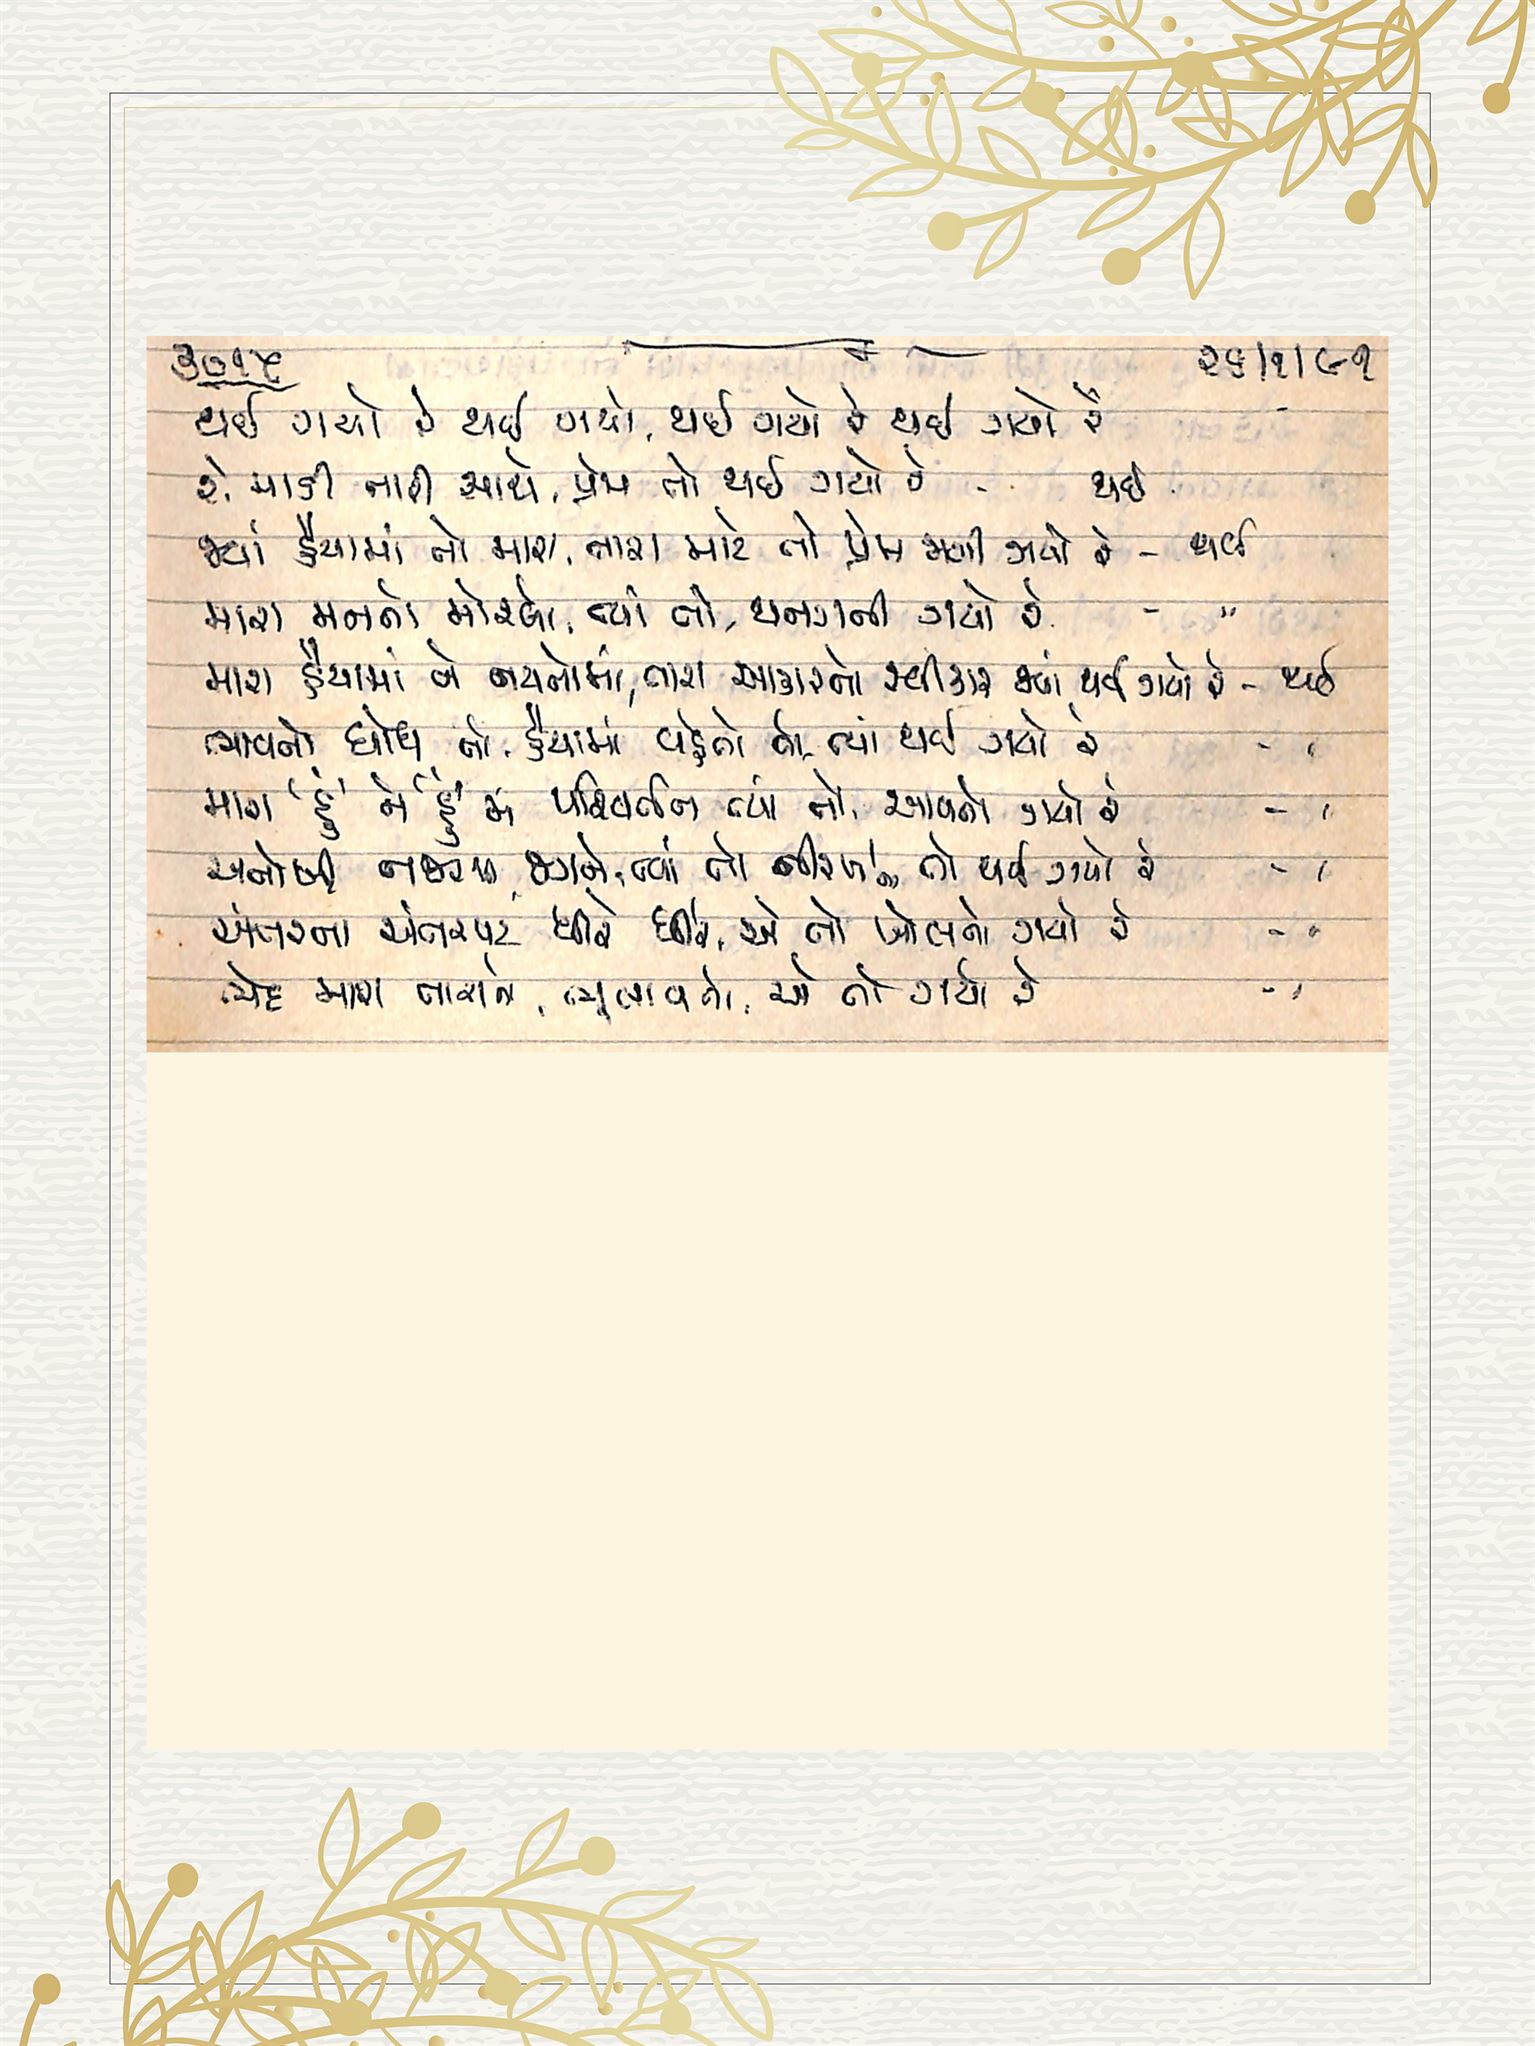 ૩૦૧૯ ૨૬/૧/૯૧
થઈ ગયો રે થઈ ગયો, થઈ ગયો રે થઈ ગયો રે
રે, માડી તારી સાથે, પ્રેમ તો થઈ ગયો રે - થઈ
જ્યાં હૈયામાં તો મારા, તારા માટે તો પ્રેમ જાગી ગયો રે - થઈ
મારા મનનો મોરલો, ત્યાં તો, થનગની ગયો રે - "
મારા હૈયામાં ને નયનોમાં, તારા આકારનો સ્વીકાર જ્યાં થઈ ગયો રે - થઈ
ભાવનો ધોધ તો, હૈયામાં વહેતો તો ત્યાં થઈ ગયો રે - "
મારા 'હું' ને 'હું' માં પરિવર્તન ત્યાં તો, આવતો ગયો રે - "
અનોખી નજરથી જગને, ત્યાં તો નીરખતો તો થઈ ગયો રે - "
અંતરના અંતરપટ ધીરે ધીરે, એ તો ખોલતો ગયો રે - "
ભેદ મારા તારાને, ભૂલાવતો, એ તો ગયો રે - "